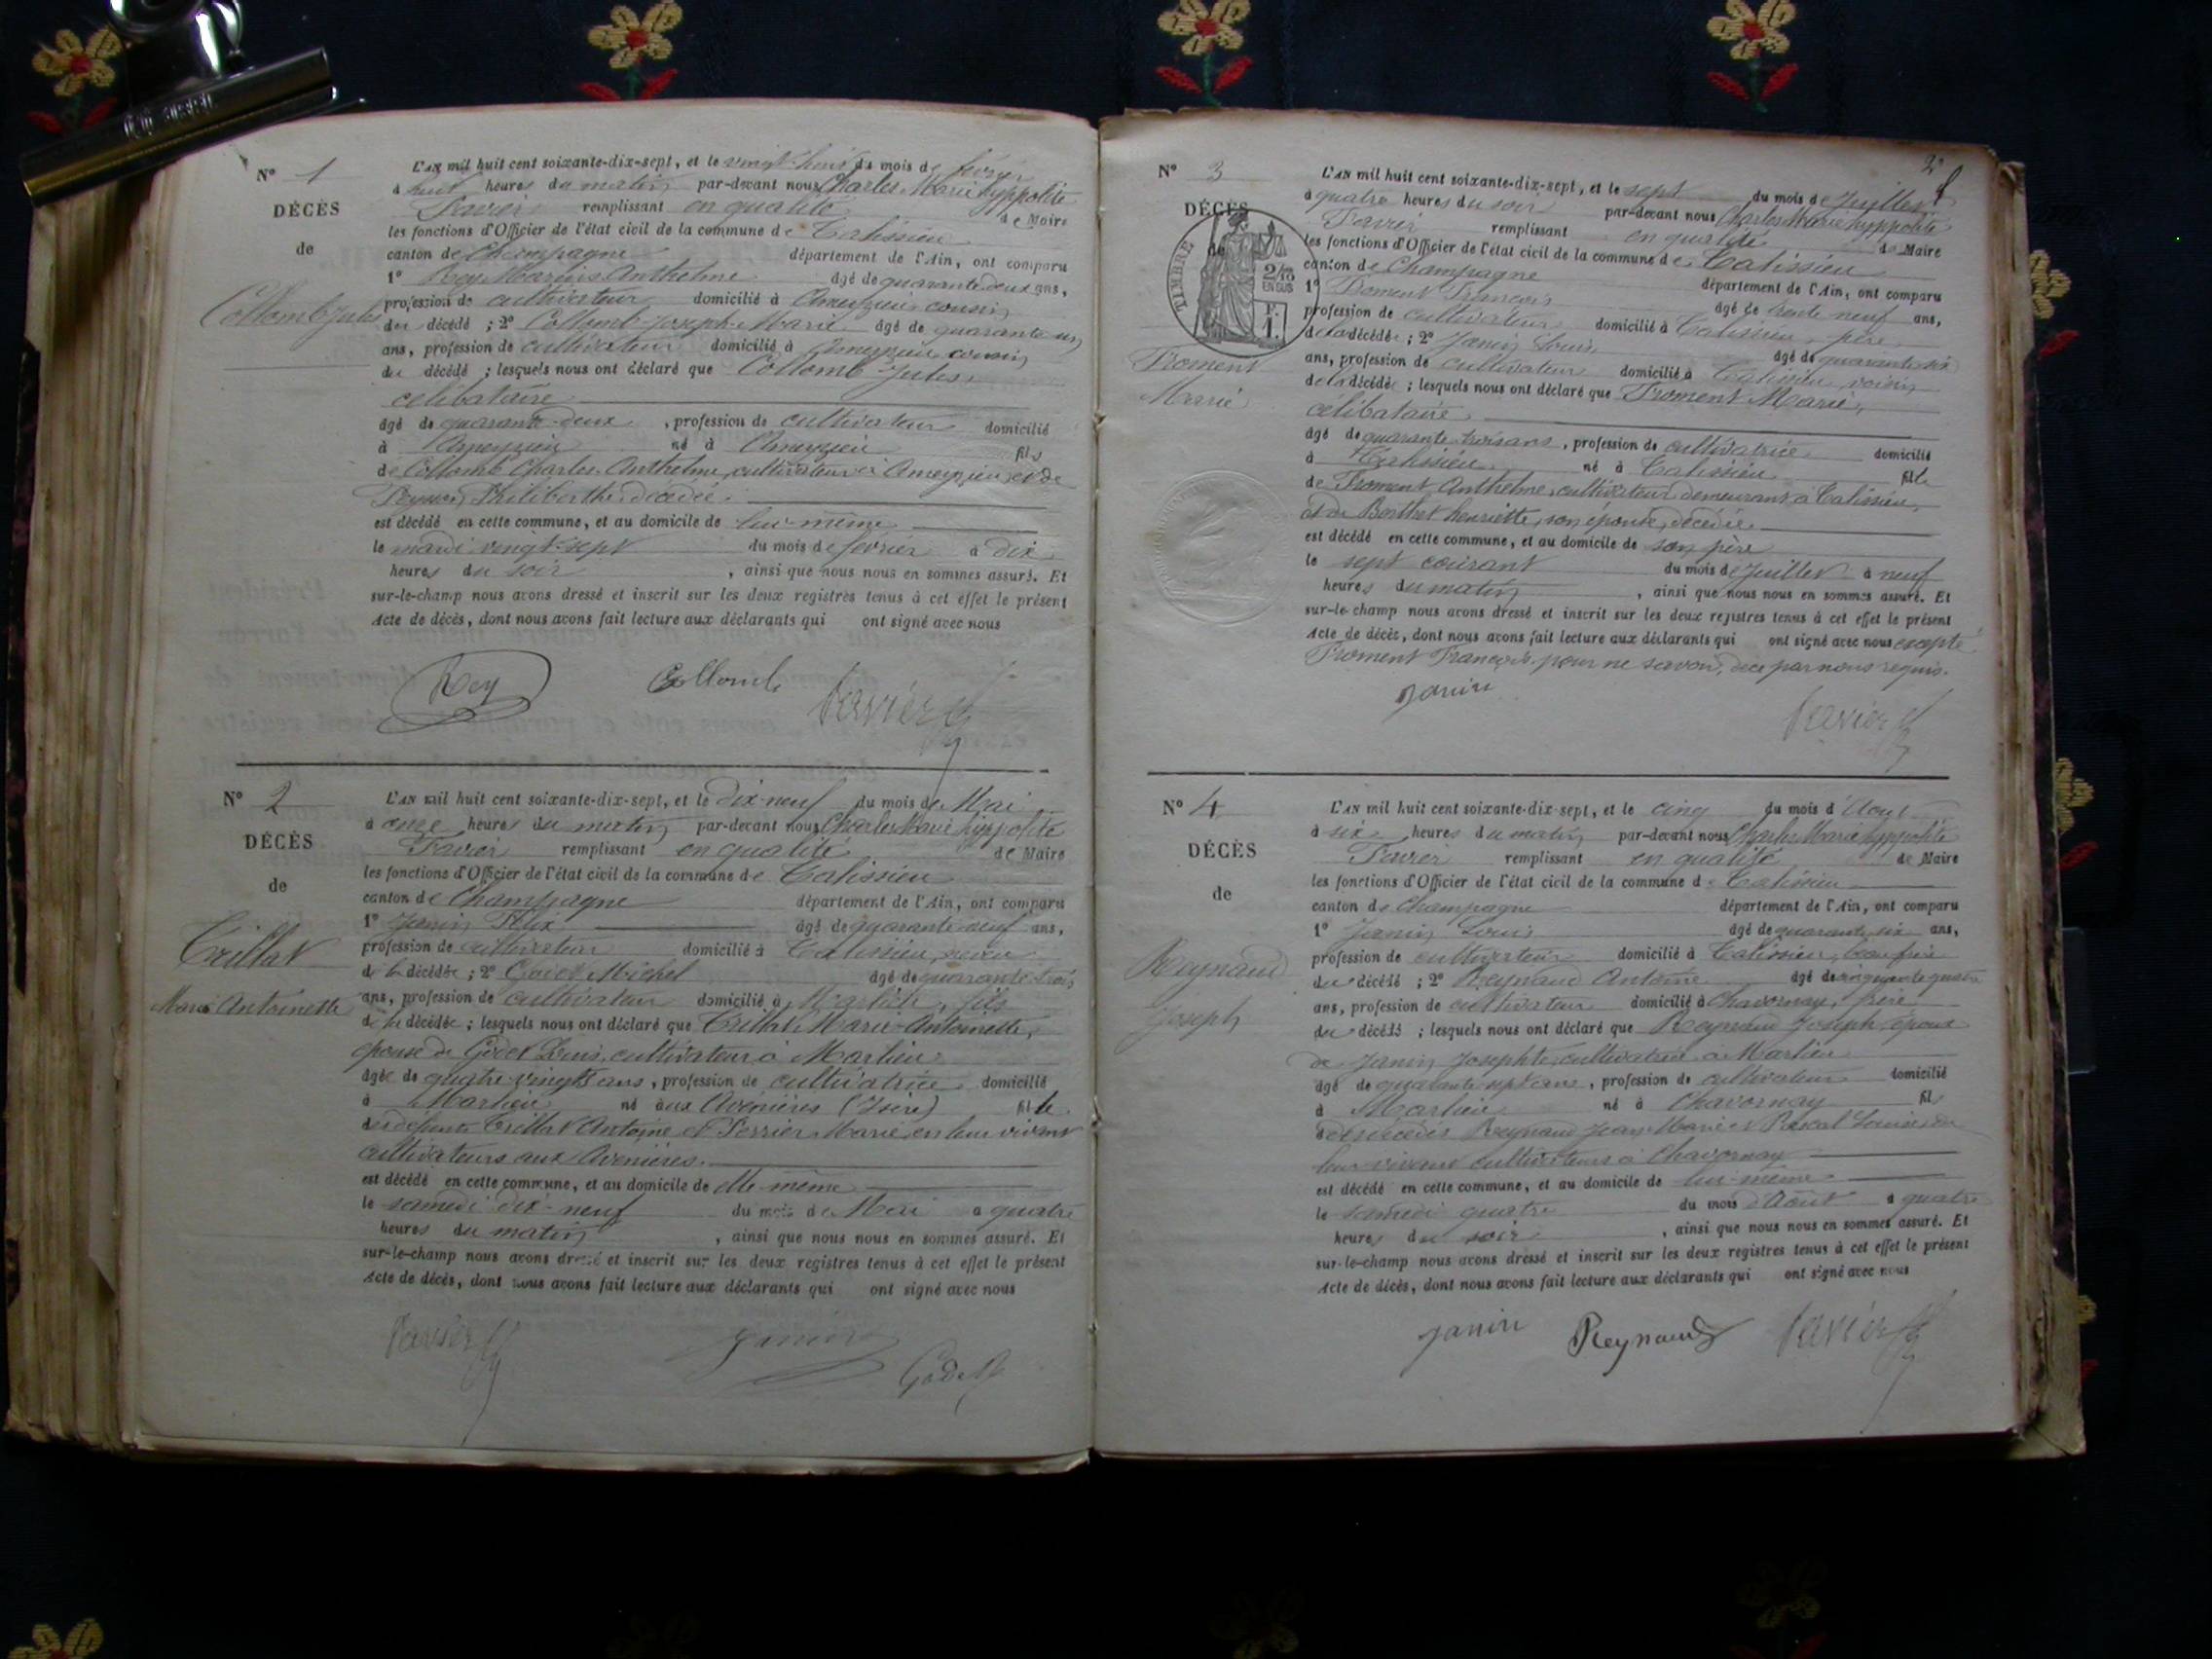 N° 1
DÉCÈS
de
Collomb Jules
L'AN mil huit cent soixante-dix-sept, et le vingt-huit du mois de février
à huit heures du matin par-devant nous Charles Marie hyppolite
Favier remplissant en qualité de Maire
les fonctions d'Officier de l'état civil de la commune de Talissieu
canton de Champagne département de l'Ain, ont comparu
1° Rey Marius Anthelme âgé de quarante deux ans,
profession de cultivateur domicilié à Ameyzieu cousin
du décédé ; 2° Collomb Joseph Marie âgé de quarante un
ans, profession de cultivateur domicilié à Ameyzieu cousin
du décédé ; lesquels nous ont déclaré que Collomb Jules,
célibataire
âgé de quarante-deux , profession de cultivateur domicilié
à Ameyzieu né à Ameyzieu fils
de Collomb Charles Anthelme, cultivateur à Ameyzieu, et de
Philiberthe décédée
est décédé en cette commune, et au domicile de lui-même
le mardi vingt-sept du mois de février à dix
heures du soir , ainsi que nous nous en sommes assuré. Et
sur-le-champ nous avons dressé et inscrit sur les deux registres tenus à cet effet le présent
Acte de décès, dont nous avons fait lecture aux déclarants qui ont signé avec nous
Rey Collomb Favier
N° 2
DÉCÈS
de
Trillat
Marie Antoinette
L'AN mil huit cent soixante-dix-sept, et le dix-neuf du mois de Mai
à onze heures du matin par-devant nous Charles Marie hyppolite
Favier remplissant en qualité de Maire
les fonctions d'Officier de l'état civil de la commune de Talissieu
canton de Champagne département de l'Ain, ont comparu
1° Janin Félix âgé de quarante-neuf ans,
profession de cultivateur domicilié à Talissieu, neveu
de la décédée ; 2° Godet Michel âgé de quarante-trois
ans, profession de cultivateur domicilié à Marlieu, fils
de la décédée ; lesquels nous ont déclaré que Trillat Marie-Antoinette,
épouse de Godet Louis, cultivateur à Marlieu
âgée de quatre-vingts ans , profession de cultivatrice domicilié
à Marlieu né aux Avenières (Isère) fille
des défunts Trillat Antoine et Perrier Marie, en leur vivant
cultivateurs aux Avenières.
est décédé en cette commune, et au domicile de elle-même
le samedi dix-neuf du mois de Mai à quatre
heures du matin , ainsi que nous nous en sommes assuré. Et
sur-le-champ nous avons dressé et inscrit sur les deux registres tenus à cet effet le présent
Acte de décès, dont nous avons fait lecture aux déclarants qui ont signé avec nous
Favier Janin Godet
2
N° 3
DÉCÈS
de
TIMBRE
2/10
EN SUS
F.
1.
Froment
Marie
L'AN mil huit cent soixante-dix-sept, et le sept du mois de Juillet
à quatre heures du soir par-devant nous Charles Marie hyppolite
Favier remplissant en qualité de Maire
les fonctions d'Officier de l'état civil de la commune de Talissieu
canton de Champagne département de l'Ain, ont comparu
1° Froment François âgé de trente neuf ans,
profession de cultivateur domicilié à Talissieu, père
de la décédée ; 2° Janin Louis âgé de quarante-six
ans, profession de cultivateur domicilié à Talissieu, voisin
de la décédée ; lesquels nous ont déclaré que Froment Marie,
célibataire
âgé de quarante-trois ans , profession de cultivatrice domicilié
à Talissieu né à Talissieu fille
de Froment Anthelme, cultivateur demeurant à Talissieu,
et de Berthet henriette, son épouse, décédée
est décédé en cette commune, et au domicile de son père
le sept courant du mois de Juillet à neuf
heures du matin , ainsi que nous nous en sommes assuré. Et
sur-le-champ nous avons dressé et inscrit sur les deux registres tenus à cet effet le présent
Acte de décès, dont nous avons fait lecture aux déclarants qui ont signé avec nous excepté
Froment François, pour ne savoir, de ce par nous requis.
Janin
Favier
N° 4
DÉCÈS
de
Reynaud
Joseph
L'AN mil huit cent soixante-dix-sept, et le cinq du mois d'Aout
à six heures du matin par-devant nous Charles Marie hyppolite
Favier remplissant en qualité de Maire
les fonctions d'Officier de l'état civil de la commune de Talissieu
canton de Champagne département de l'Ain, ont comparu
1° Janin Louis âgé de quarante six ans,
profession de cultivateur domicilié à Talissieu, beau frère
du décédé ; 2° Reynaud Antoine âgé de cinquante quatre
ans, profession de cultivateur domicilié à Chavornay, frère
du décédé ; lesquels nous ont déclaré que Reynaud Joseph, époux
de Janin Josephte, cultivatrice à Marlieu
âgé de quarante sept ans , profession de cultivateur domicilié
à Marlieu né à Chavornay fils
des décédés Reynaud Jean-Marie et Pascal Louise, de
leur vivant cultivateurs à Chavornay
est décédé en cette commune, et au domicile de lui-même
le samedi quatre du mois d'Août à quatre
heures du soir , ainsi que nous nous en sommes assuré. Et
sur-le-champ nous avons dressé et inscrit sur les deux registres tenus à cet effet le présent
Acte de décès, dont nous avons fait lecture aux déclarants qui ont signé avec nous
Janin Reynaud Favier